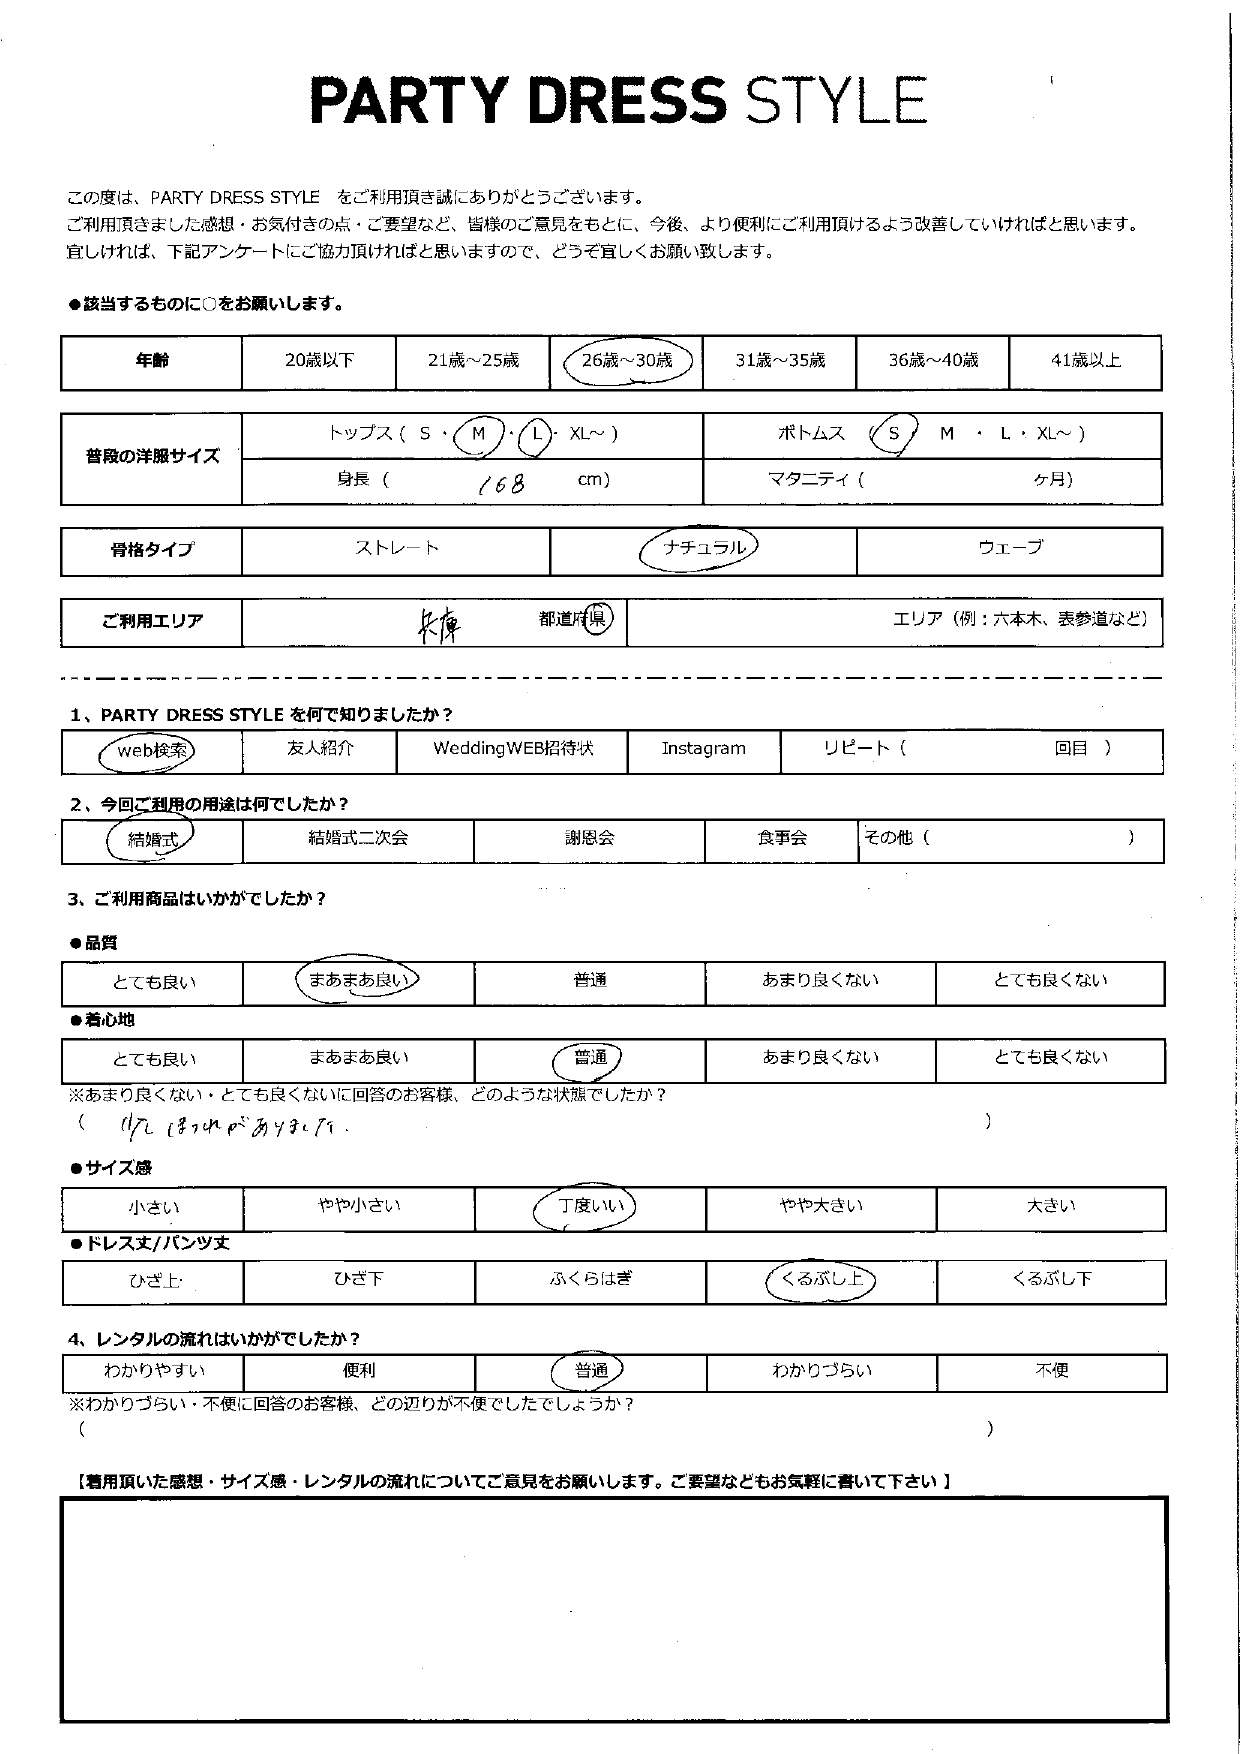 PARTY DRESS STYLE
この度は、PARTY DRESS STYLE をご利用頂き誠にありがとうございます。
ご利用頂きました感想・お気付きの点・ご要望など、皆様のご意見をもとに、今後、より便利にご利用頂けるよう改善していければと思います。
宜しければ、下記アンケートにご協力頂ければと思いますので、どうぞ宜しくお願い致します。
●該当するものに○をお願いします。
年齢 20歳以下 21歳～25歳 26歳～30歳 31歳～35歳 36歳～40歳 41歳以上
普段の洋服サイズ トップス ( S ・ M ・ L ・ XL～ ) ボトムス ( S M ・ L ・ XL～ )
身長 ( 168 cm) マタニティ ( ケ月)
骨格タイプ ストレート ナチュラル ウェーブ
ご利用エリア 兵庫 都道府県 エリア（例：六本木、表参道など）
1、PARTY DRESS STYLE を何で知りましたか？
web検索 友人紹介 WeddingWEB招待状 Instagram リピート ( 回目 )
2、今回ご利用の用途は何でしたか？
結婚式 結婚式二次会 謝恩会 食事会 その他 ( )
3、ご利用商品はいかがでしたか？
●品質
とても良い まあまあ良い 普通 あまり良くない とても良くない
●着心地
とても良い まあまあ良い 普通 あまり良くない とても良くない
※あまり良くない・とても良くないに回答のお客様、どのような状態でしたか？
( 少しほつれがありました. )
●サイズ感
小さい やや小さい 丁度いい やや大きい 大きい
●ドレス丈/パンツ丈
ひざ上 ひざ下 ふくらはぎ くるぶし上 くるぶし下
4、レンタルの流れはいかがでしたか？
わかりやすい 便利 普通 わかりづらい 不便
※わかりづらい・不便に回答のお客様、どの辺りが不便でしたでしょうか？
( )
【着用頂いた感想・サイズ感・レンタルの流れについてご意見をお願いします。ご要望などもお気軽に書いて下さい 】